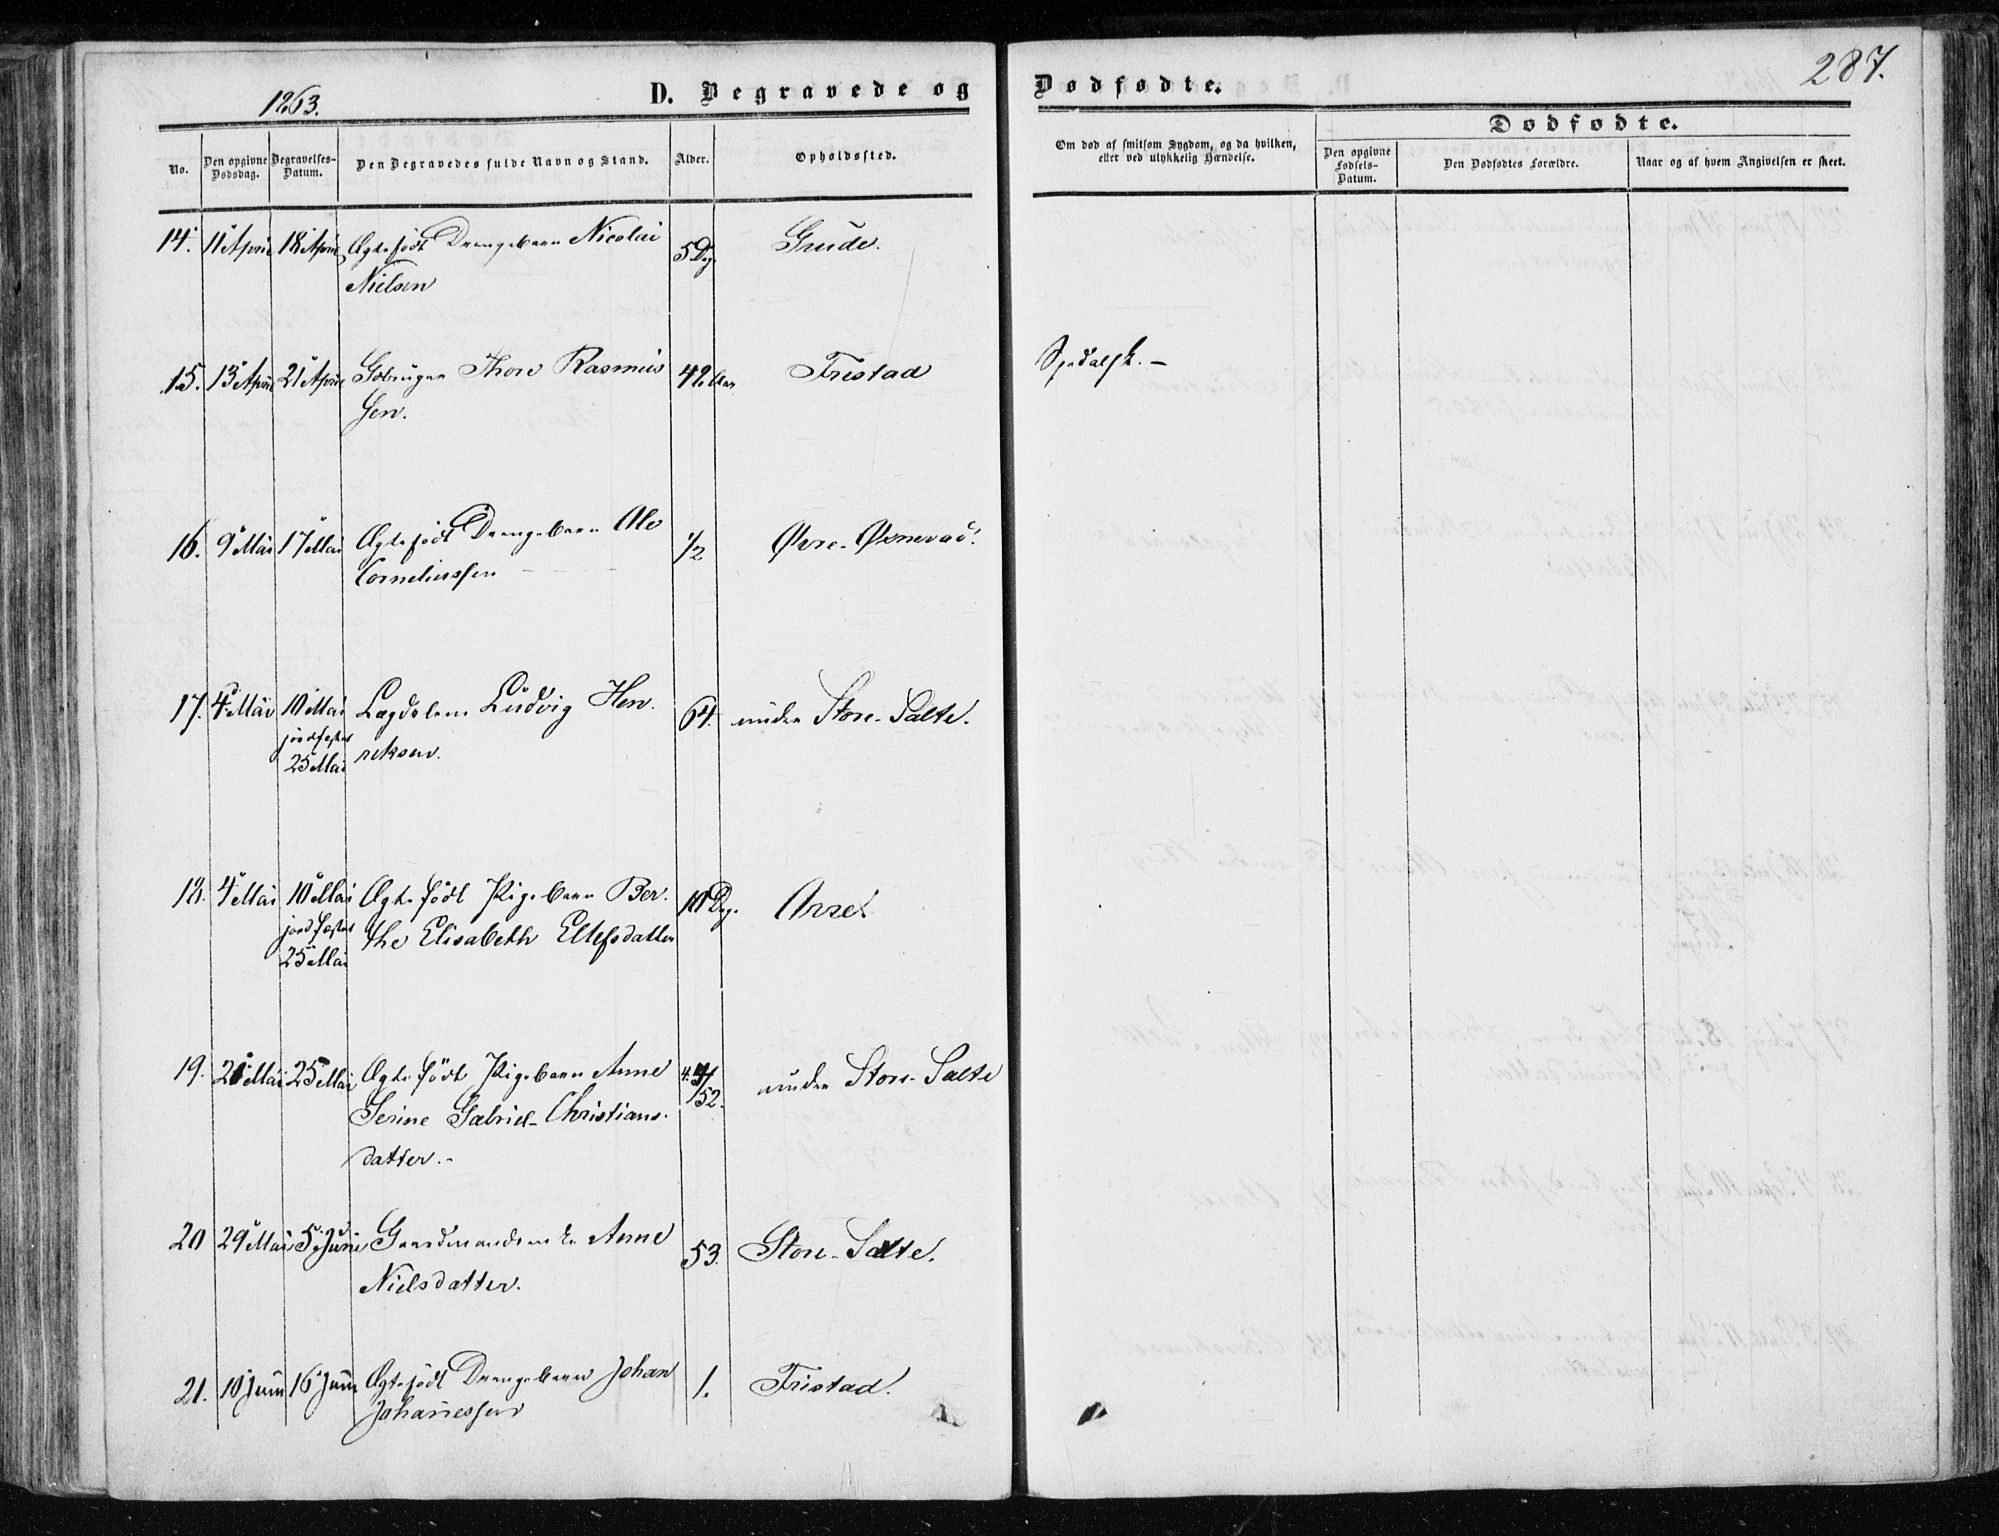 287.
1863.
D. Begravede og Dødfødte.
Dødfødte.
No.
Den opgivne Dødsdag.
Begravelses-Datum.
Den Begravedes fulde Navn og Stand.
Alder.
Opholdssted.
Om død af smitsom Sygdom, og da hvilken, eller ved ulykkelig Hændelse.
Den opgivne Fødsels-Datum.
Den Dødfødtes Forældre.
Naar og af hvem Angivelsen er skeet.
14. 11 April 18 April Ægtefødt Drengebarn Nicolai 5 Dg. Grude.
Nielsen
15. 13 April 21 April Gbruger Thore Rasmus 42 Aar Tristad Spedalsk. –
sen.
16. 9 Mai 17 Mai Ægtefødt Drengebarn Ole ½ Øvre-Øxnevad.
Corneliussen
17. 4 Mai 10 Mai Lægdslem Ludvig Hen- 64. under Store-Salte.
jordfæstet reksen.
25 Mai
18. 4 Mai 10 Mai Ægtefødt Pigebarn Ber- 10 Dg.
jordfæstet the Elisabeth Eltefsdatter
25 Mai
19. Mai 25 Mai Ægtefødt Pigebarn Anne /52. under Store-Salte
Serine Gabriel-Christians-
datter.-
20 29 Mai 5 Juni Gaardmandsenke Anne 53. Store-Salte.
Nielsdatter.
21. 10 Juni 16 Juni Ægtefødt Drengebarn Johan 1. Tristad.
Johannessen